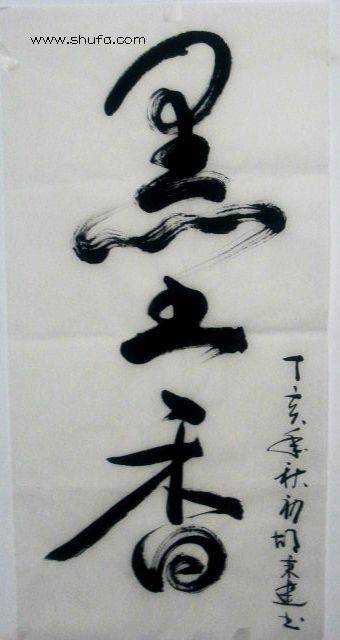 www.shufa.com
黑土香
丁亥年秋初胡东建书